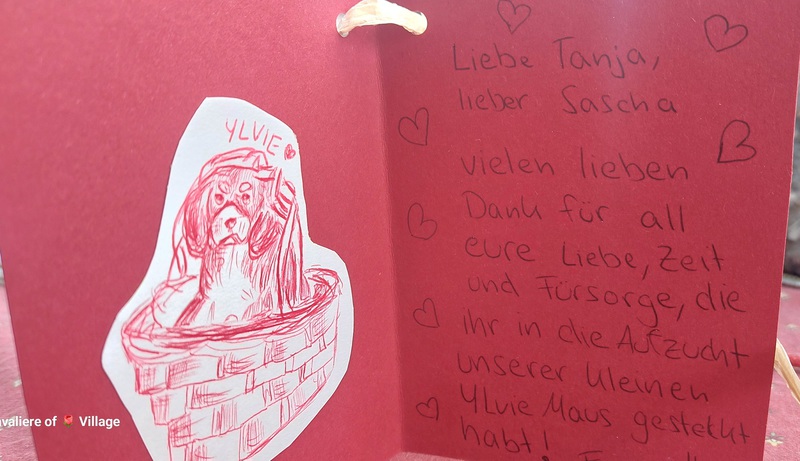 YLVIE
Liebe Tanja,
lieber Sascha
vielen lieben
Dank für all
eure Liebe, Zeit
und Fürsorge, die
ihr in die Aufzucht
unserer kleinen
Ylvie Maus gesteckt
habt!
valiere of 🌹 Village